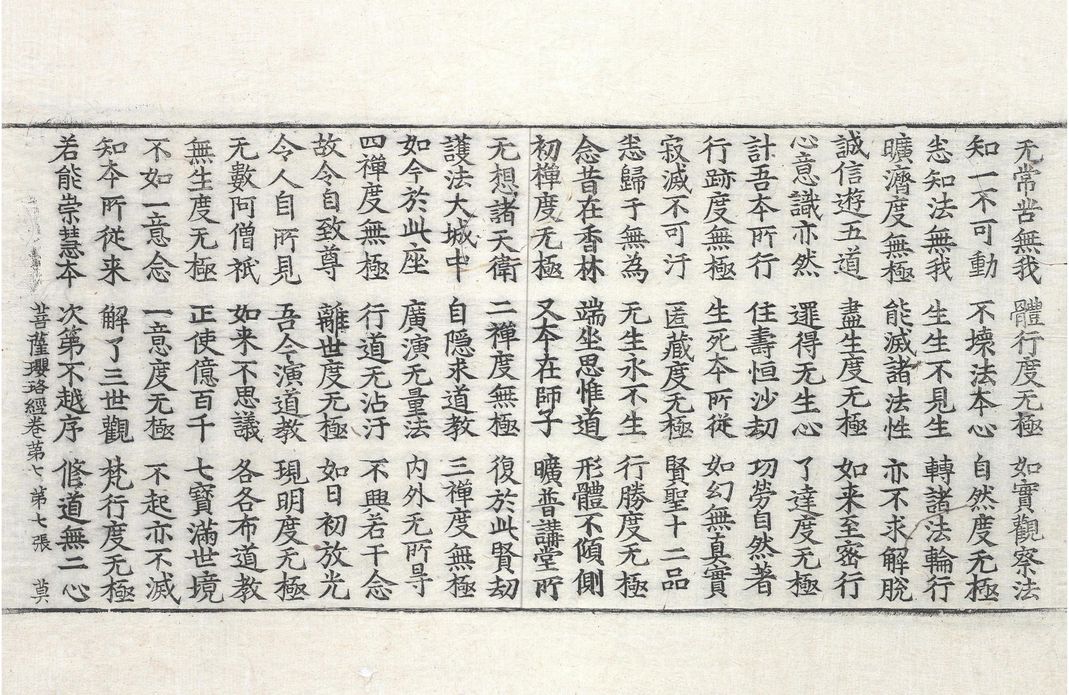 无常苦無我 體行度无極 如實觀察法
知一不可動 不壞法本心 自然度无極
悉知法無我 生生不見生 轉諸法輪行
曠濟度無極 能滅諸法性 亦不求解脫
誠信遊五道 盡生度无極 如来至密行
心意識亦然 逻得无生心 了達度无極
計吾夲所行 住壽恒沙劫 功勞自然著
行跡度無極 生死夲所從 如幻無真實
寂滅不可汙 匿藏度无極 賢聖十二品
悉歸于無為 无生永不生 行勝度无極
念昔在香林 端坐思惟道 形體不傾側
初禅度无極 又夲在師子 曠普講堂所
无想諸天衛 二禅度無極 復於此賢劫
護法大城中 自隐求道教 三禅度無極
如今於此座 廣演无量法 内外无所㝵
四禅度無極 行道无沾汙 不興若干念
故令自致尊 離世度无極 如日初放光
令人自所見 吾今演道教 現明度无極
无數阿僧祇 如来不思議 各各布道教
無生度无極 正使億百千 七寶滿世境
不如一意念 一意度无極 不起亦不滅
知夲所從来 解了三世觀 梵行度无極
若能崇慧夲 次第不越序 修道無二心
菩薩瓔珞經卷第七 第七張 莫